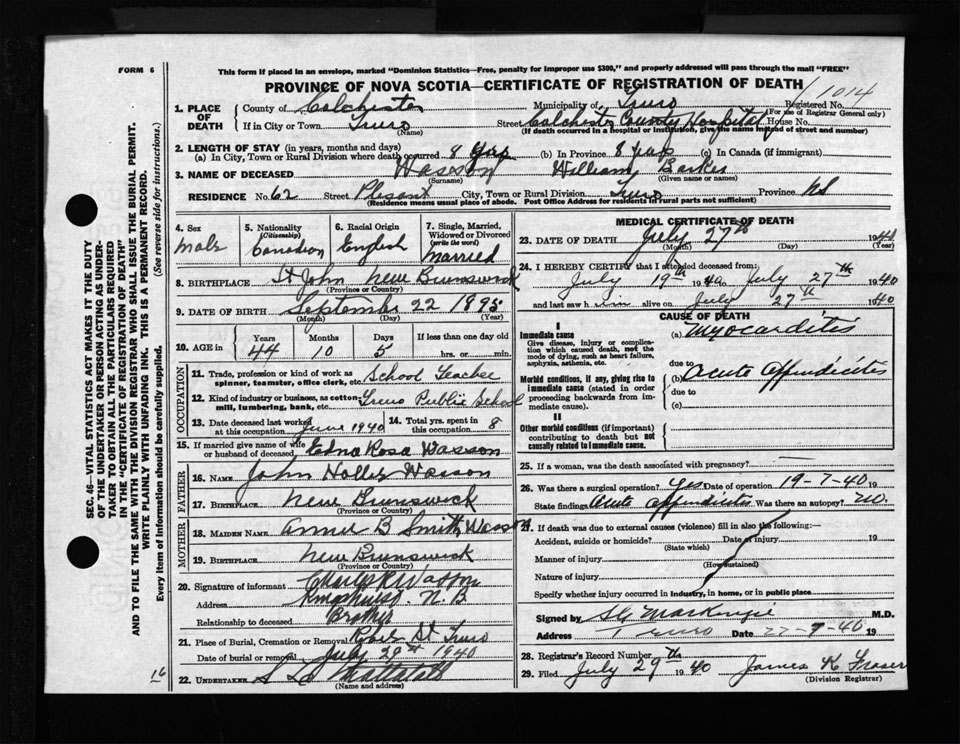 FORM 6
This form if placed in an envelope, marked "Dominion Statistics—Free, penalty for improper use $300," and properly addressed will pass through the mail "FREE"
PROVINCE OF NOVA SCOTIA—CERTIFICATE OF REGISTRATION OF DEATH
1014
1. PLACE OF DEATH
County of Colchester Municipality of Truro Registered No.
(For use of Registrar General only)
If in City or Town Truro Street Colchester County Hospital House No.
(Name) (If death occurred in a hospital or institution, give the name instead of street and number)
2. LENGTH OF STAY (in years, months and days)
(a) In City, Town or Rural Division where death occurred 8 yrs (b) In Province 8 yrs (c) In Canada (if immigrant)
3. NAME OF DECEASED Wasson William Barker
(Surname) (Given name or names)
RESIDENCE No. 62 Street Plesant City, Town or Rural Division Truro Province NS
(Residence means usual place of abode. Post Office Address for residents in rural parts not sufficient)
4. Sex male
5. Nationality (Citizenship) Canadian
6. Racial Origin English
7. Single, Married, Widowed or Divorced (write the word) Married
8. BIRTHPLACE St John New Brunswick
(Province or Country)
9. DATE OF BIRTH September 22 1895
(Month) (Day) (Year)
10. AGE in Years Months Days If less than one day old
44 10 5 hrs. or min.
OCCUPATION
11. Trade, profession or kind of work as spinner, teamster, office clerk, etc. School Teacher
12. Kind of industry or business, as cotton mill, lumbering, bank, etc. Truro Public School
13. Date deceased last worked at this occupation June 1940
14. Total yrs. spent in this occupation 8
15. If married give name of wife or husband of deceased Edna Rosa Wasson
FATHER
16. NAME John Wasson
17. BIRTHPLACE New Brunswick
(Province or Country)
MOTHER
18. MAIDEN NAME Annie B Smith Wasson
19. BIRTHPLACE New Brunswick
(Province or Country)
20. Signature of informant Wasson
Address N.B
Relationship to deceased Brother
21. Place of Burial, Cremation or Removal Robie St Truro
Date of burial or removal July 29th 1940
22. UNDERTAKER
(Name and address)
16
MEDICAL CERTIFICATE OF DEATH
23. DATE OF DEATH July 27th 1940
(Month) (Day) (Year)
24. I HEREBY CERTIFY that I attended deceased from:
July 19th 1940 to July 27th 1940
and last saw him alive on July 27th 1940
CAUSE OF DEATH
I
Immediate cause
Give disease, injury or complication which caused death, not the mode of dying, such as heart failure, asphyxia, asthenia, etc.
(a) Myocarditis
due to
Morbid conditions, if any, giving rise to immediate cause (stated in order proceeding backwards from immediate cause).
(b) Acute Appendicitis
due to
(c)
II
Other morbid conditions (if important) contributing to death but not causally related to immediate cause.
25. If a woman, was the death associated with pregnancy?
26. Was there a surgical operation? yes Date of operation 19-7-40
State findings Acute Appendicitis Was there an autopsy? no.
27. If death was due to external causes (violence) fill in also the following:—
Accident, suicide or homicide? Date of injury 19
(State which)
Manner of injury
(How sustained)
Nature of injury
Specify whether injury occurred in industry, in home, or in public place
Signed by MacKenzie M.D.
Address Truro Date 19
28. Registrar's Record Number
29. Filed July 29th 1940 James K Fraser
(Division Registrar)
SEC. 46—VITAL STATISTICS ACT MAKES IT THE DUTY
OF THE UNDERTAKER OR PERSON ACTING AS UNDER-
TAKER TO OBTAIN ALL THE PARTICULARS REQUIRED
IN THE "CERTIFICATE OF REGISTRATION OF DEATH"
AND TO FILE THE SAME WITH THE DIVISION REGISTRAR WHO SHALL ISSUE THE BURIAL PERMIT.
WRITE PLAINLY WITH UNFADING INK. THIS IS A PERMANENT RECORD.
Every item of information should be carefully supplied. (See reverse side for instructions.)